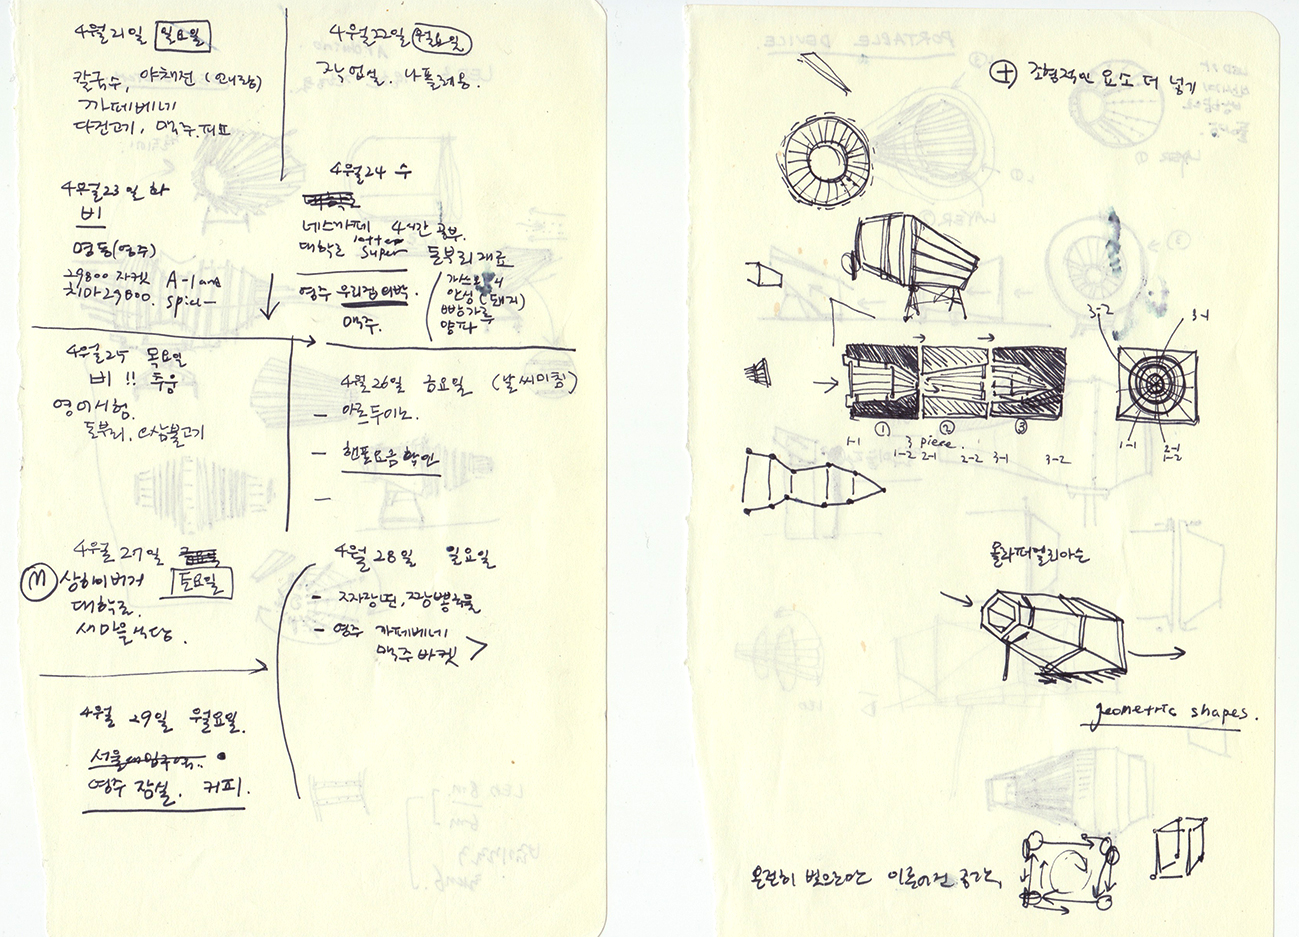 4월21일 일요일
칼국수, 야채전
까페베네
닭전고기, 맥주.피쵸
4월22일 월요일
작업실. 나플레옹.
4월23일 화
비
명동(영주)
29800 자켓 A-land
치마29800.
4월24 수
네스카페 4시간 공부.
대학로 super
돌부리 재료
안성(돼지)
빵가루
양파
영주 우리집
맥주.
4월25 목요일
비 !! 추움
영어시험.
돌부리, 삼불고기
4월26일 금요일 (날씨미침)
- 아르두이노.
- 핸폰요금 확인
-
4월 27일
토요일
M 상하이버거
대학로.
새마을식당.
4월 28일 일요일
- 짜장면, 짜장뽕국물
- 영주 까페베네
맥주 바켓 >
4월 29일 월요일.
영주 잠실. 커피.
+ 조형적인 요소 더 넣기
3-2
3-1
① ② ③
3 piece.
1-1 1-2 2-1 2-2 3-1 3-2
1-1
2-1
1-2
올라퍼엘리아슨
geometric shapes.
온전히 빛으로만 이루어진 공간,